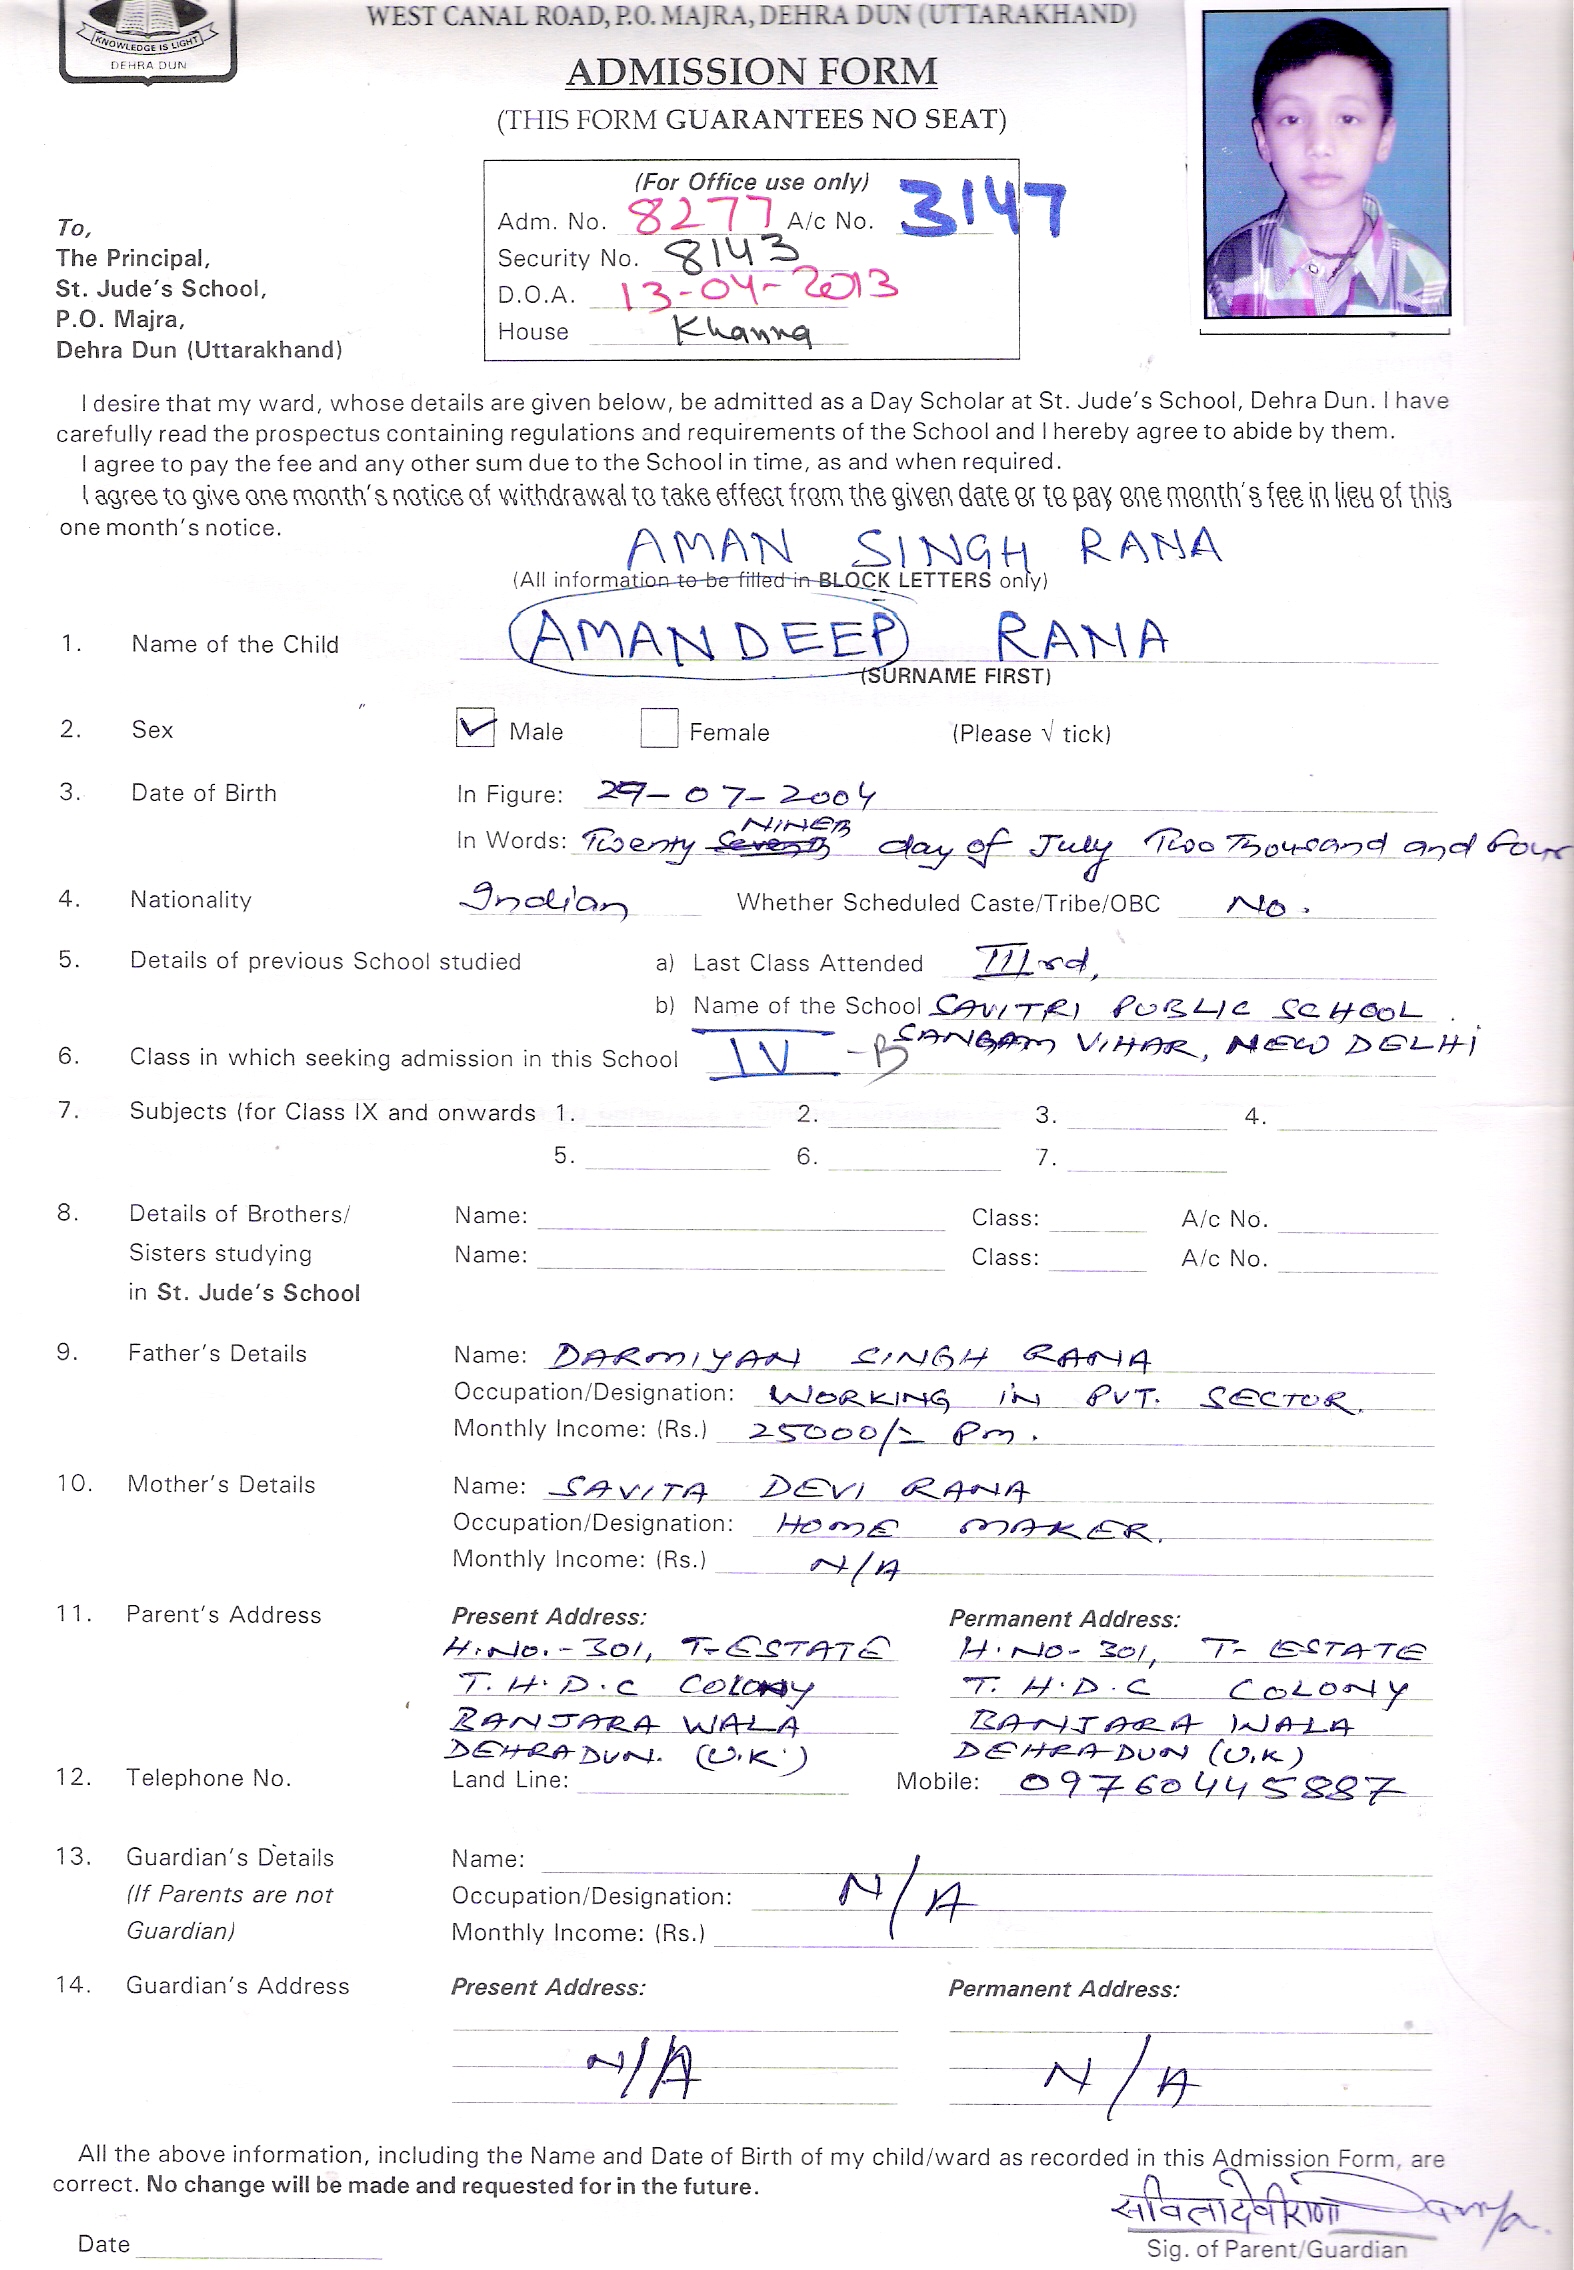 KNOWLEDGE IS LIGHT
DEHRA DUN
WEST CANAL ROAD, P.O. MAJRA, DEHRA DUN (UTTARAKHAND)
ADMISSION FORM
(THIS FORM GUARANTEES NO SEAT)
(For Office use only)
Adm. No. 8277 A/c No. 3147
Security No. 8143
D.O.A. 13-04-2013
House Khanna
To,
The Principal,
St. Jude's School,
P.O. Majra,
Dehra Dun (Uttarakhand)
I desire that my ward, whose details are given below, be admitted as a Day Scholar at St. Jude's School, Dehra Dun. I have
carefully read the prospectus containing regulations and requirements of the School and I hereby agree to abide by them.
I agree to pay the fee and any other sum due to the School in time, as and when required.
I agree to give one month's notice of withdrawal to take effect from the given date or to pay one month's fee in lieu of this
one month's notice.
AMAN SINGH RANA
(All information to be filled in BLOCK LETTERS only)
1. Name of the Child AMANDEEP RANA
(SURNAME FIRST)
2. Sex Male Female (Please √ tick)
3. Date of Birth In Figure: 29-07-2004
NINEth
In Words: Twenty Seventh day of July Two Thousand and Four
4. Nationality Indian Whether Scheduled Caste/Tribe/OBC No.
5. Details of previous School studied a) Last Class Attended IIIrd,
b) Name of the School SAVITRI PUBLIC SCHOOL
SANGAM VIHAR, NEW DELHI
6. Class in which seeking admission in this School IV -B
7. Subjects (for Class IX and onwards 1. 2. 3. 4.
5. 6. 7.
8. Details of Brothers/ Name: Class: A/c No.
Sisters studying Name: Class: A/c No.
in St. Jude's School
9. Father's Details Name: DARMIYAN SINGH RANA
Occupation/Designation: WORKING IN PVT. SECTOR.
Monthly Income: (Rs.) 25000/- Pm.
10. Mother's Details Name: SAVITA DEVI RANA
Occupation/Designation: HOME MAKER.
Monthly Income: (Rs.) N/A
11. Parent's Address Present Address: Permanent Address:
H.NO.-301, T-ESTATE H.NO-301, T-ESTATE
T.H.D.C COLONY T.H.D.C COLONY
BANJARA WALA BANJARA WALA
DEHRADUN. (U.K.) DEHRADUN (U.K)
12. Telephone No. Land Line: Mobile: 09760445887
13. Guardian's Details Name:
(If Parents are not Occupation/Designation: N/A
Guardian) Monthly Income: (Rs.)
14. Guardian's Address Present Address: Permanent Address:
N/A N/A
All the above information, including the Name and Date of Birth of my child/ward as recorded in this Admission Form, are
correct. No change will be made and requested for in the future.
सविता देवी राणा
Date Sig. of Parent/Guardian